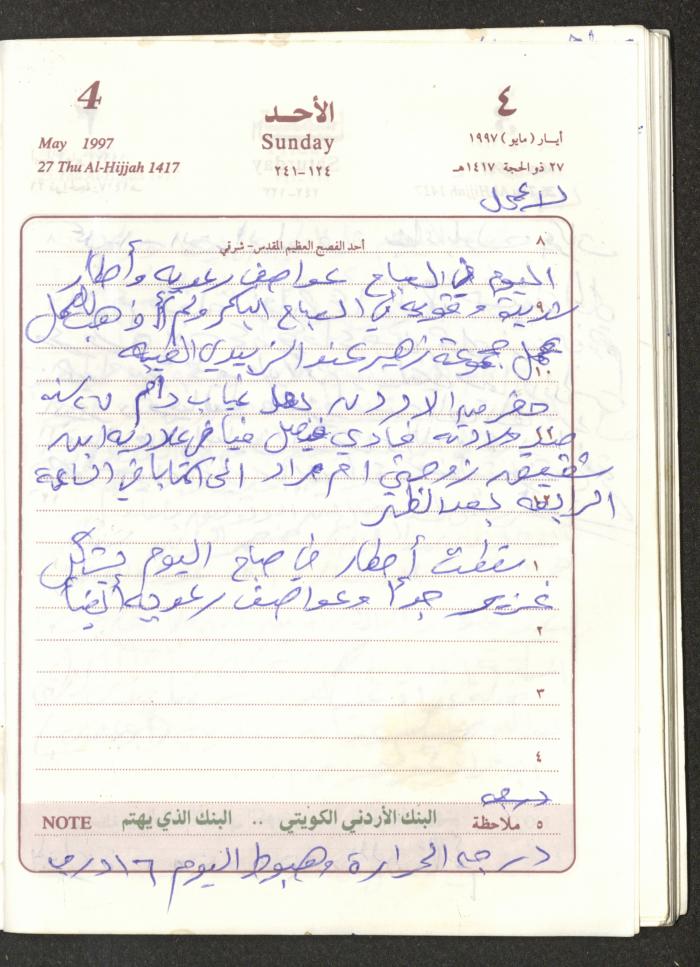 4
الأحد
٤
May 1997
Sunday
أيار (مايو) ١٩٩٧
27 Thu Al-Hijjah 1417
١٢٤-٢٤١
٢٧ ذو الحجة ١٤١٧هـ
لا عمل
٨
أحد الفصح العظيم المقدس - شرقي
اليوم في الصباح عواصف رعديه وأمطار
٩
شديدة وقويه في الصباح الباكر ولم أذهب للعمل
١٠
عمل مجموعة زهير عند الزبيدي
حضر من الاردن بعد غياب دام ٢٥ سنه
١١
فادي فيصل ابن
شقيقه زوجتي ام مراد الى اكتابا في الساعة
١٢
الرابعه بعد الظهر
١
سقطت أمطار في صباح اليوم بشكل
غزير جداً وعواصف رعديه أيضاً
٢
٣
٤
درجه
NOTE
البنك الأردني الكويتي .. البنك الذي يهتم
٥ ملاحظة
درجه الحرارة وهبوط اليوم ١٦ درجه